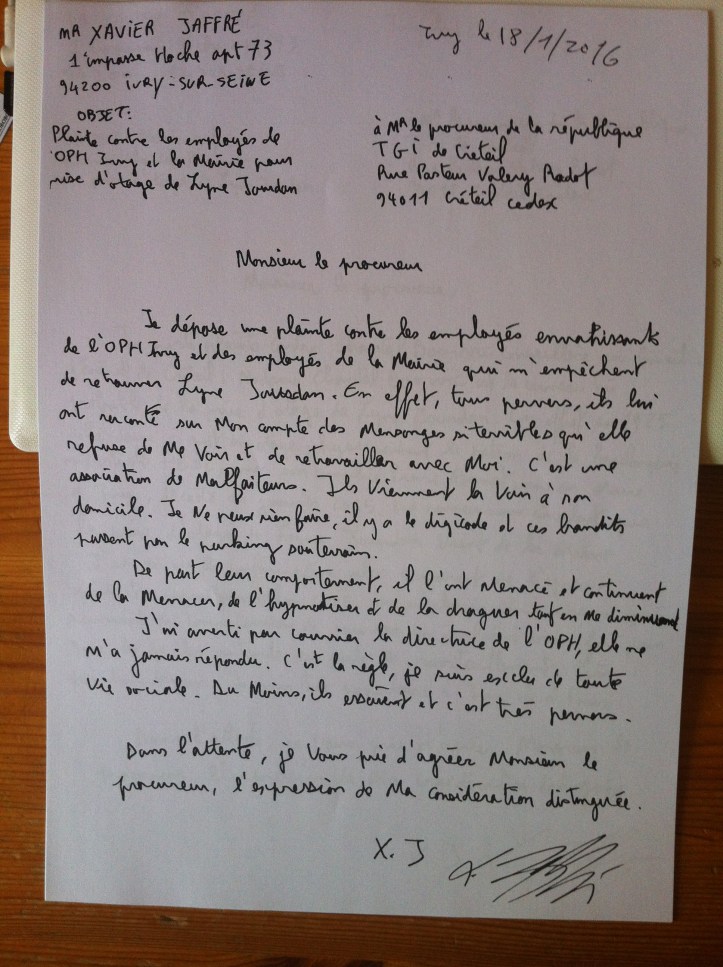 MR XAVIER JAFFRÉ
1 impasse Hoche apt 73
94200 IVRY-SUR-SEINE
Ivry le 18/1/2016
OBJET:
Plainte contre les employés de
OPH Ivry et la Mairie pour
prise d'otage de Lyne Jourdan
à Mr le procureur de la république
TGI de Créteil
Rue Pasteur Valery Radot
94011 Créteil cedex
Monsieur le procureur
Je dépose une plainte contre les employés envahissants
de l'OPH Ivry et des employés de la Mairie qui m'empêchent
de retrouver Lyne Jourdan. En effet, tous pervers, ils lui
ont raconté sur mon compte des Mensonges si terribles qu'elle
refuse de Me Voir et de retravailler avec Moi. C'est une
association de Malfaiteurs. Ils Viennent la Voir à son
domicile. Je Ne peux rien faire, il y a le digicode et ces bandits
passent par le parking souterrain.
De part leur comportement, il l'ont Menacé et continuent
de la Menacer, de l'hypnotiser et de la draguer tout en me diminuant
J'ai averti par courrier la directrice de l'OPH, elle ne
M'a jamais répondu. C'est la règle, je suis exclu de toute
Vie sociale. Du Moins, ils essaient et c'est très pervers.
Dans l'attente, je Vous prie d'agréer Monsieur le
procureur, l'expression de Ma considération distinguée.
X. J